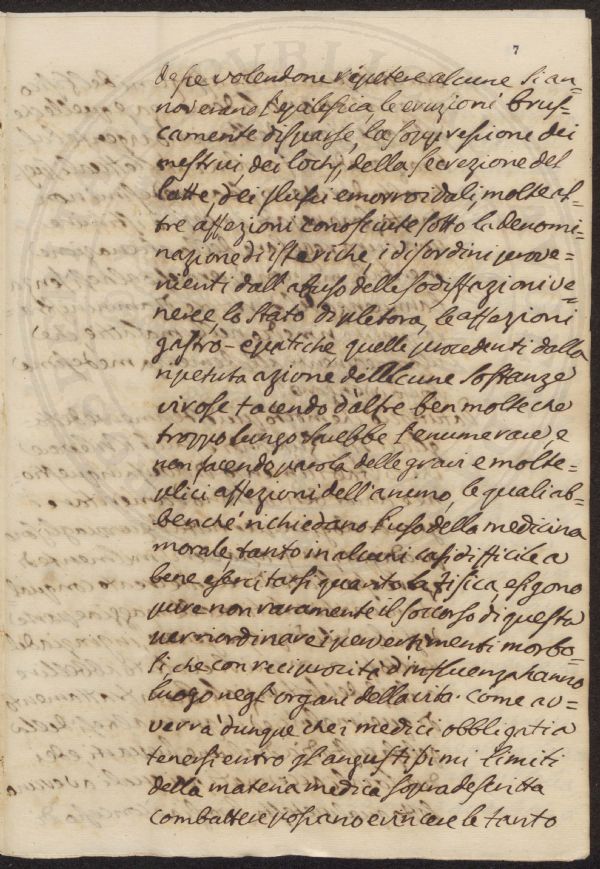 7
dasie volendone ripetere alcune si an=
noverano l'epalesica, le eruzioni brus=
camente disparse, la soppressione dei
mestrui, dei lochj, della secrezione del
latte dei flussi emorroidali, molte al=
tre affezioni conosciute sotto la denomi=
nazione di isteriche, i disordini prove=
nienti dall'abuso delle sodisfazioni ve=
neree, lo stato di pletora, le affezioni
gastro-epatiche, quelle procedenti dalla
ripetuta azione delle cune sostanze
virose tacendo d'altre ben molte che
troppo lungo sarebbe l'enumerare, e
non facendo parola delle gravi e molte=
plici affezioni dell'animo, le quali ab=
benché richiedano l'uso della medicina
morale tanto in alcuni casi difficile a
bene esercitarsi quanto la fisica, esigono
pure non raramente il soccorso di questa
per riordinare i pervertimenti morbo=
si che con reciprocità d'influenza hanno
luogo negl'organi della vita. Come av=
verrà dunque che i medici obbligati a
tenersi entro gl'angustissimi limiti
della materia medica sopradescritta
combattere possano e vincere le tanto